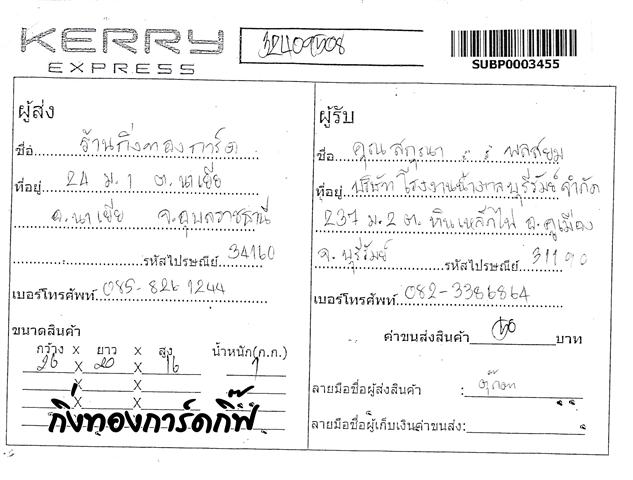 KERRY
EXPRESS
SUBP0003455
ผู้ส่ง
ชื่อ ร้านกิ่งทองการ์ด
ที่อยู่ 24 ม.1 ต.นาเยีย
อ.นาเยีย จ.อุบลราชธานี
รหัสไปรษณีย์ 34160
เบอร์โทรศัพท์ 085-826 1244
ขนาดสินค้า
กว้าง x ยาว x สูง น้ำหนัก(ก.ก.)
26 x 20 x 16
x x
x x
กิ่งทองการ์ดกิ๊ฟ
ผู้รับ
ชื่อ คุณ พลสยม
ที่อยู่ บริษัท โรงงานน้ำตาลบุรีรัมย์ จำกัด
237 ม.2 ต.หินเหล็กไฟ อ.คูเมือง
จ.บุรีรัมย์ รหัสไปรษณีย์ 31190
เบอร์โทรศัพท์ 082-3386864
ค่าขนส่งสินค้า บาท
ลายมือชื่อผู้ส่งสินค้า :
ลายมือชื่อผู้เก็บเงินค่าขนส่ง: